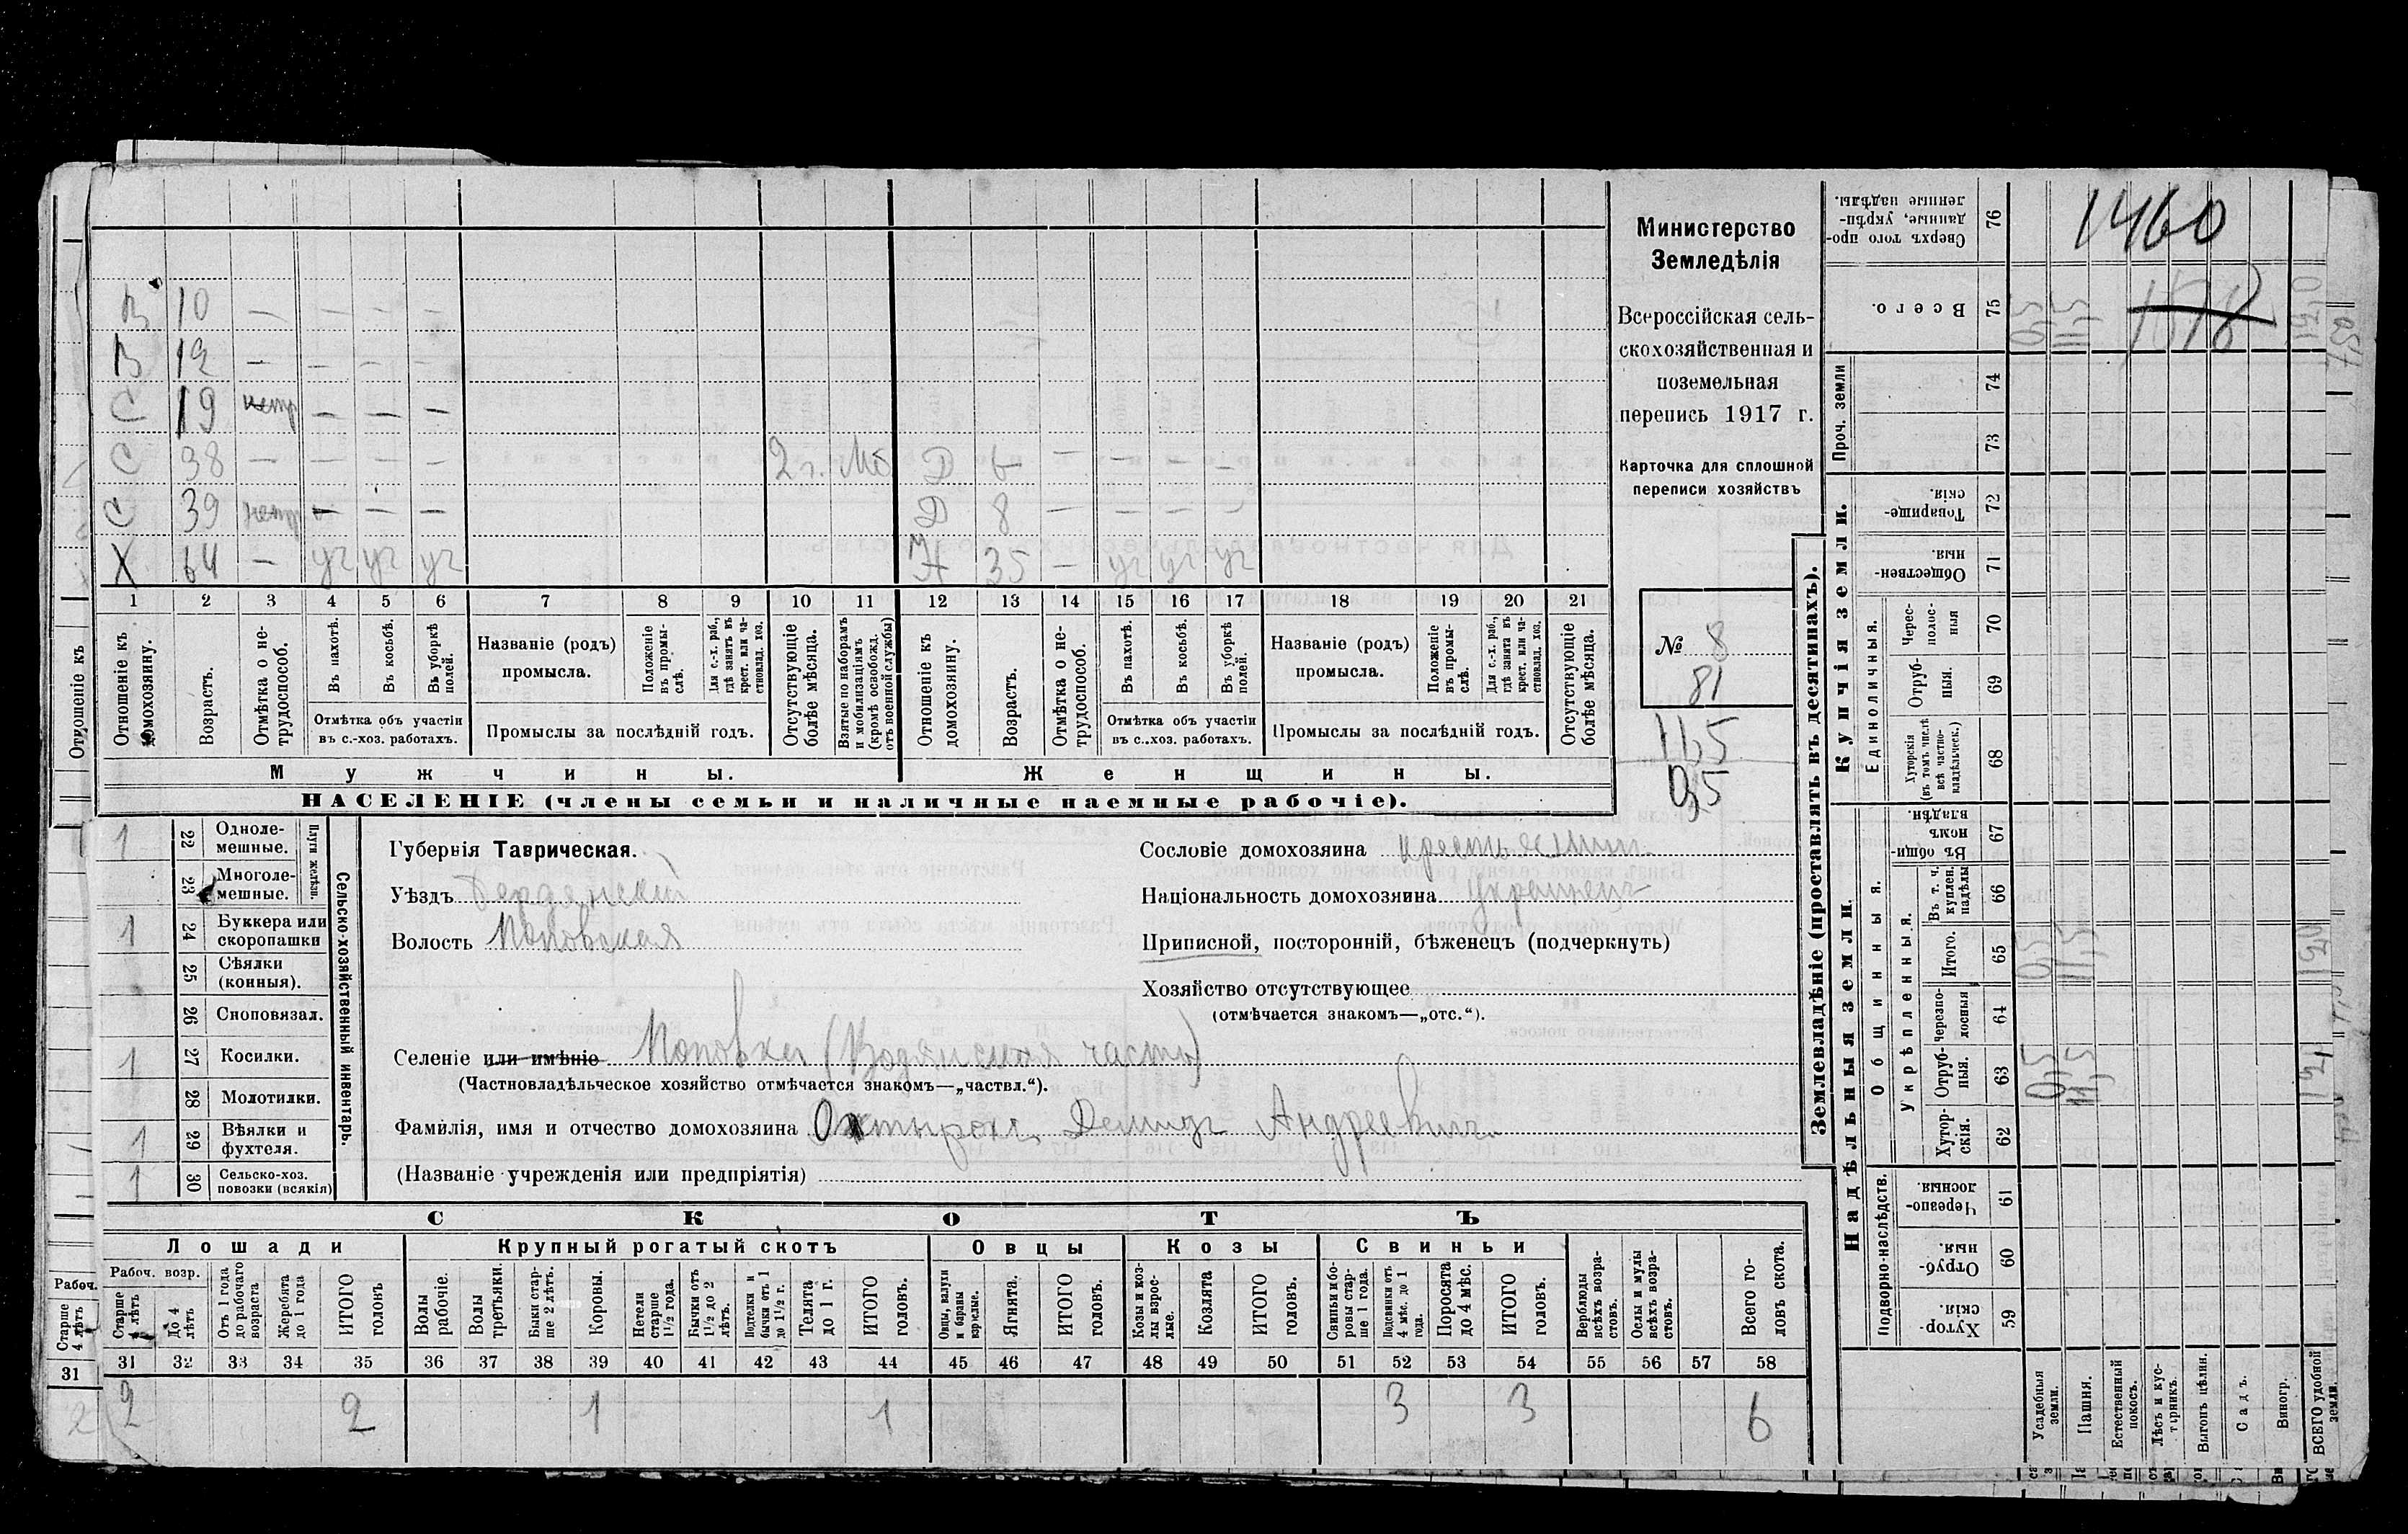 В 10 — — — —
В 12 — — — —
С 19 нетр — — —
С 38 — — — — 2 г. Мб Д 6 — — — —
С 39 нетр — — — Д 8 — — — —
Х 64 — уч уч уч Ж 35 — уч уч уч
1 2 3 4 5 6 7 8 9 10 11 12 13 14 15 16 17 18 19 20 21
Отношеніе къ домохозяину.
Возрастъ.
Отмѣтка о не-трудоспособ.
Въ пахотѣ.
Въ косьбѣ.
Въ уборкѣ полей.
Отмѣтка объ участіи
въ с.-хоз. работахъ.
Названіе (родъ)
промысла.
Положеніе въ промы-слѣ.
Для с.-х. раб., гдѣ занятъ въ крест. или ча-стновлад. хоз.
Промыслы за послѣдній годъ.
Отсутствующіе болѣе мѣсяца.
Взятые по наборамъ и мобилизаціямъ (кромѣ освобожд. отъ военной службы)
Отношеніе къ домохозяину.
Возрастъ.
Отмѣтка о не-трудоспособ.
Въ пахотѣ.
Въ косьбѣ.
Въ уборкѣ полей.
Отмѣтка объ участіи
въ с.-хоз. работахъ.
Названіе (родъ)
промысла.
Положеніе въ промы-слѣ.
Для с.-х. раб., гдѣ занята въ крест. или ча-стновлад. хоз.
Промыслы за послѣдній годъ.
Отсутствующіе болѣе мѣсяца.
Мужчины.
Женщины.
НАСЕЛЕНІЕ (члены семьи и наличные наемные рабочіе).
Министерство
Земледѣлія
Всероссійская сель-
скохозяйственная и
поземельная
перепись 1917 г.
Карточка для сплошной
переписи хозяйствъ
№ 8
81
11,5
0,5
1 22 Одноле-мешные.
23 Многоле-мешные.
Плуги желѣзн.
1 24 Буккера или скоропашки
25 Сѣялки (конныя).
26 Сноповязал.
1 27 Косилки.
28 Молотилки.
1 29 Вѣялки и фухтеля.
1 30 Сельско-хоз. повозки (всякія)
Сельско-хозяйственный инвентарь.
Губернія Таврическая.
Уѣздъ Бердянскій
Волость Поповская
Селеніе или имѣніе Поповка (Водянская часть)
(Частновладѣльческое хозяйство отмѣчается знакомъ—„частвл.“).
Фамилія, имя и отчество домохозяина Охтырохъ Демидъ Андреевичъ
(Названіе учрежденія или предпріятія)
Сословіе домохозяина крестьянин
Національность домохозяина украинецъ
Приписной, посторонній, бѣженецъ (подчеркнуть)
Хозяйство отсутствующее
(отмѣчается знакомъ—„отс.“).
СКОТЪ
Лошади
Крупный рогатый скотъ
Овцы
Козы
Свиньи
Рабоч. возр.
Старше 4 лѣтъ
До 4 лѣтъ
Отъ 1 года до рабочаго возраста
Жеребята до 1 года
ИТОГО головъ
Волы рабочіе.
Волы третьяки.
Быки стар-ше 2 лѣтъ.
Коровы.
Нетели старше 1 1/2 года.
Бычки отъ 1 1/2 до 2 лѣтъ.
Подтелки и бычки отъ 1 до 1 1/2 г.
Телята до 1 г.
ИТОГО головъ.
Овцы, валухи и бараны взрослые.
Ягнята.
ИТОГО головъ.
Козы и коз-лы взрос-лые.
Козлята
ИТОГО головъ.
Свиньи и бо-ровы стар-ше 1 года.
Подсвинки отъ 4 мѣс. до 1 года.
Поросята до 4 мѣс.
ИТОГО головъ.
Верблюды всѣхъ возра-стовъ.
Ослы и мулы всѣхъ возра-стовъ.
Всего го-ловъ скота.
31 32 33 34 35 36 37 38 39 40 41 42 43 44 45 46 47 48 49 50 51 52 53 54 55 56 57 58
2 2 1 1 3 3 6
Отношеніе къ
Рабоч.
Старше 4 лѣтъ
31
2
Землевладѣніе (проставлять въ десятинахъ).
Купчія земли.
Надѣльныя земли.
Сверхъ того про-данные, укрѣп-ленные надѣлы. 76
Всего. 75
Проч. земли
74
73
Товарище-скія. 72
Обществен-ныя. 71
Единоличныя.
Черес-полос-ныя 70
Отруб-ныя. 69
Хуторскія (въ томъ числѣ всѣ частно-владѣльческ.) 68
Общинныя.
Въ общи-номъ владѣн. 67
Укрѣпленныя.
Въ т. ч. куплен. надѣлы 66
Итого. 65
Черезпо-лосныя 64
Отруб-ныя. 63
Хутор-скія. 62
Подворно-наслѣдств.
Черезпо-лосныя. 61
Отруб-ныя. 60
Хутор-скія. 59
Усадебныя земли.
Пашня.
Естественный покосъ.
Лѣсъ и кус-тарникъ.
Выгонъ цѣлин.
Садъ.
Виногр.
ВСЕГО удобной земли.
1460
1578
0,5 11,5 120
0,5 11,5 120
0,5 11,5 12